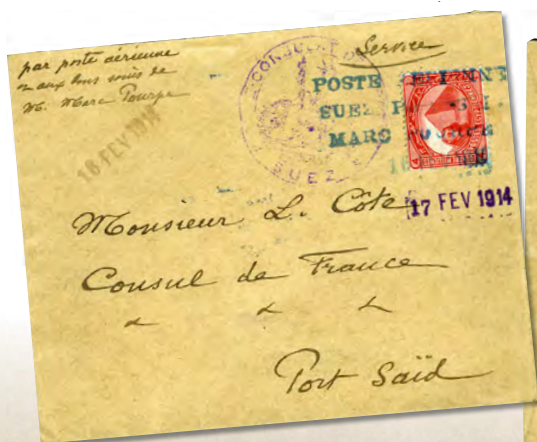 par poste aérienne
aux bons soins de
M. Marc Pourpe
16 FEV 1914
CONSULAT DE
SUEZ
Service
POSTE
SUEZ
MARC
17 FEV 1914
Monsieur L. Côte
Consul de France
Port Saïd